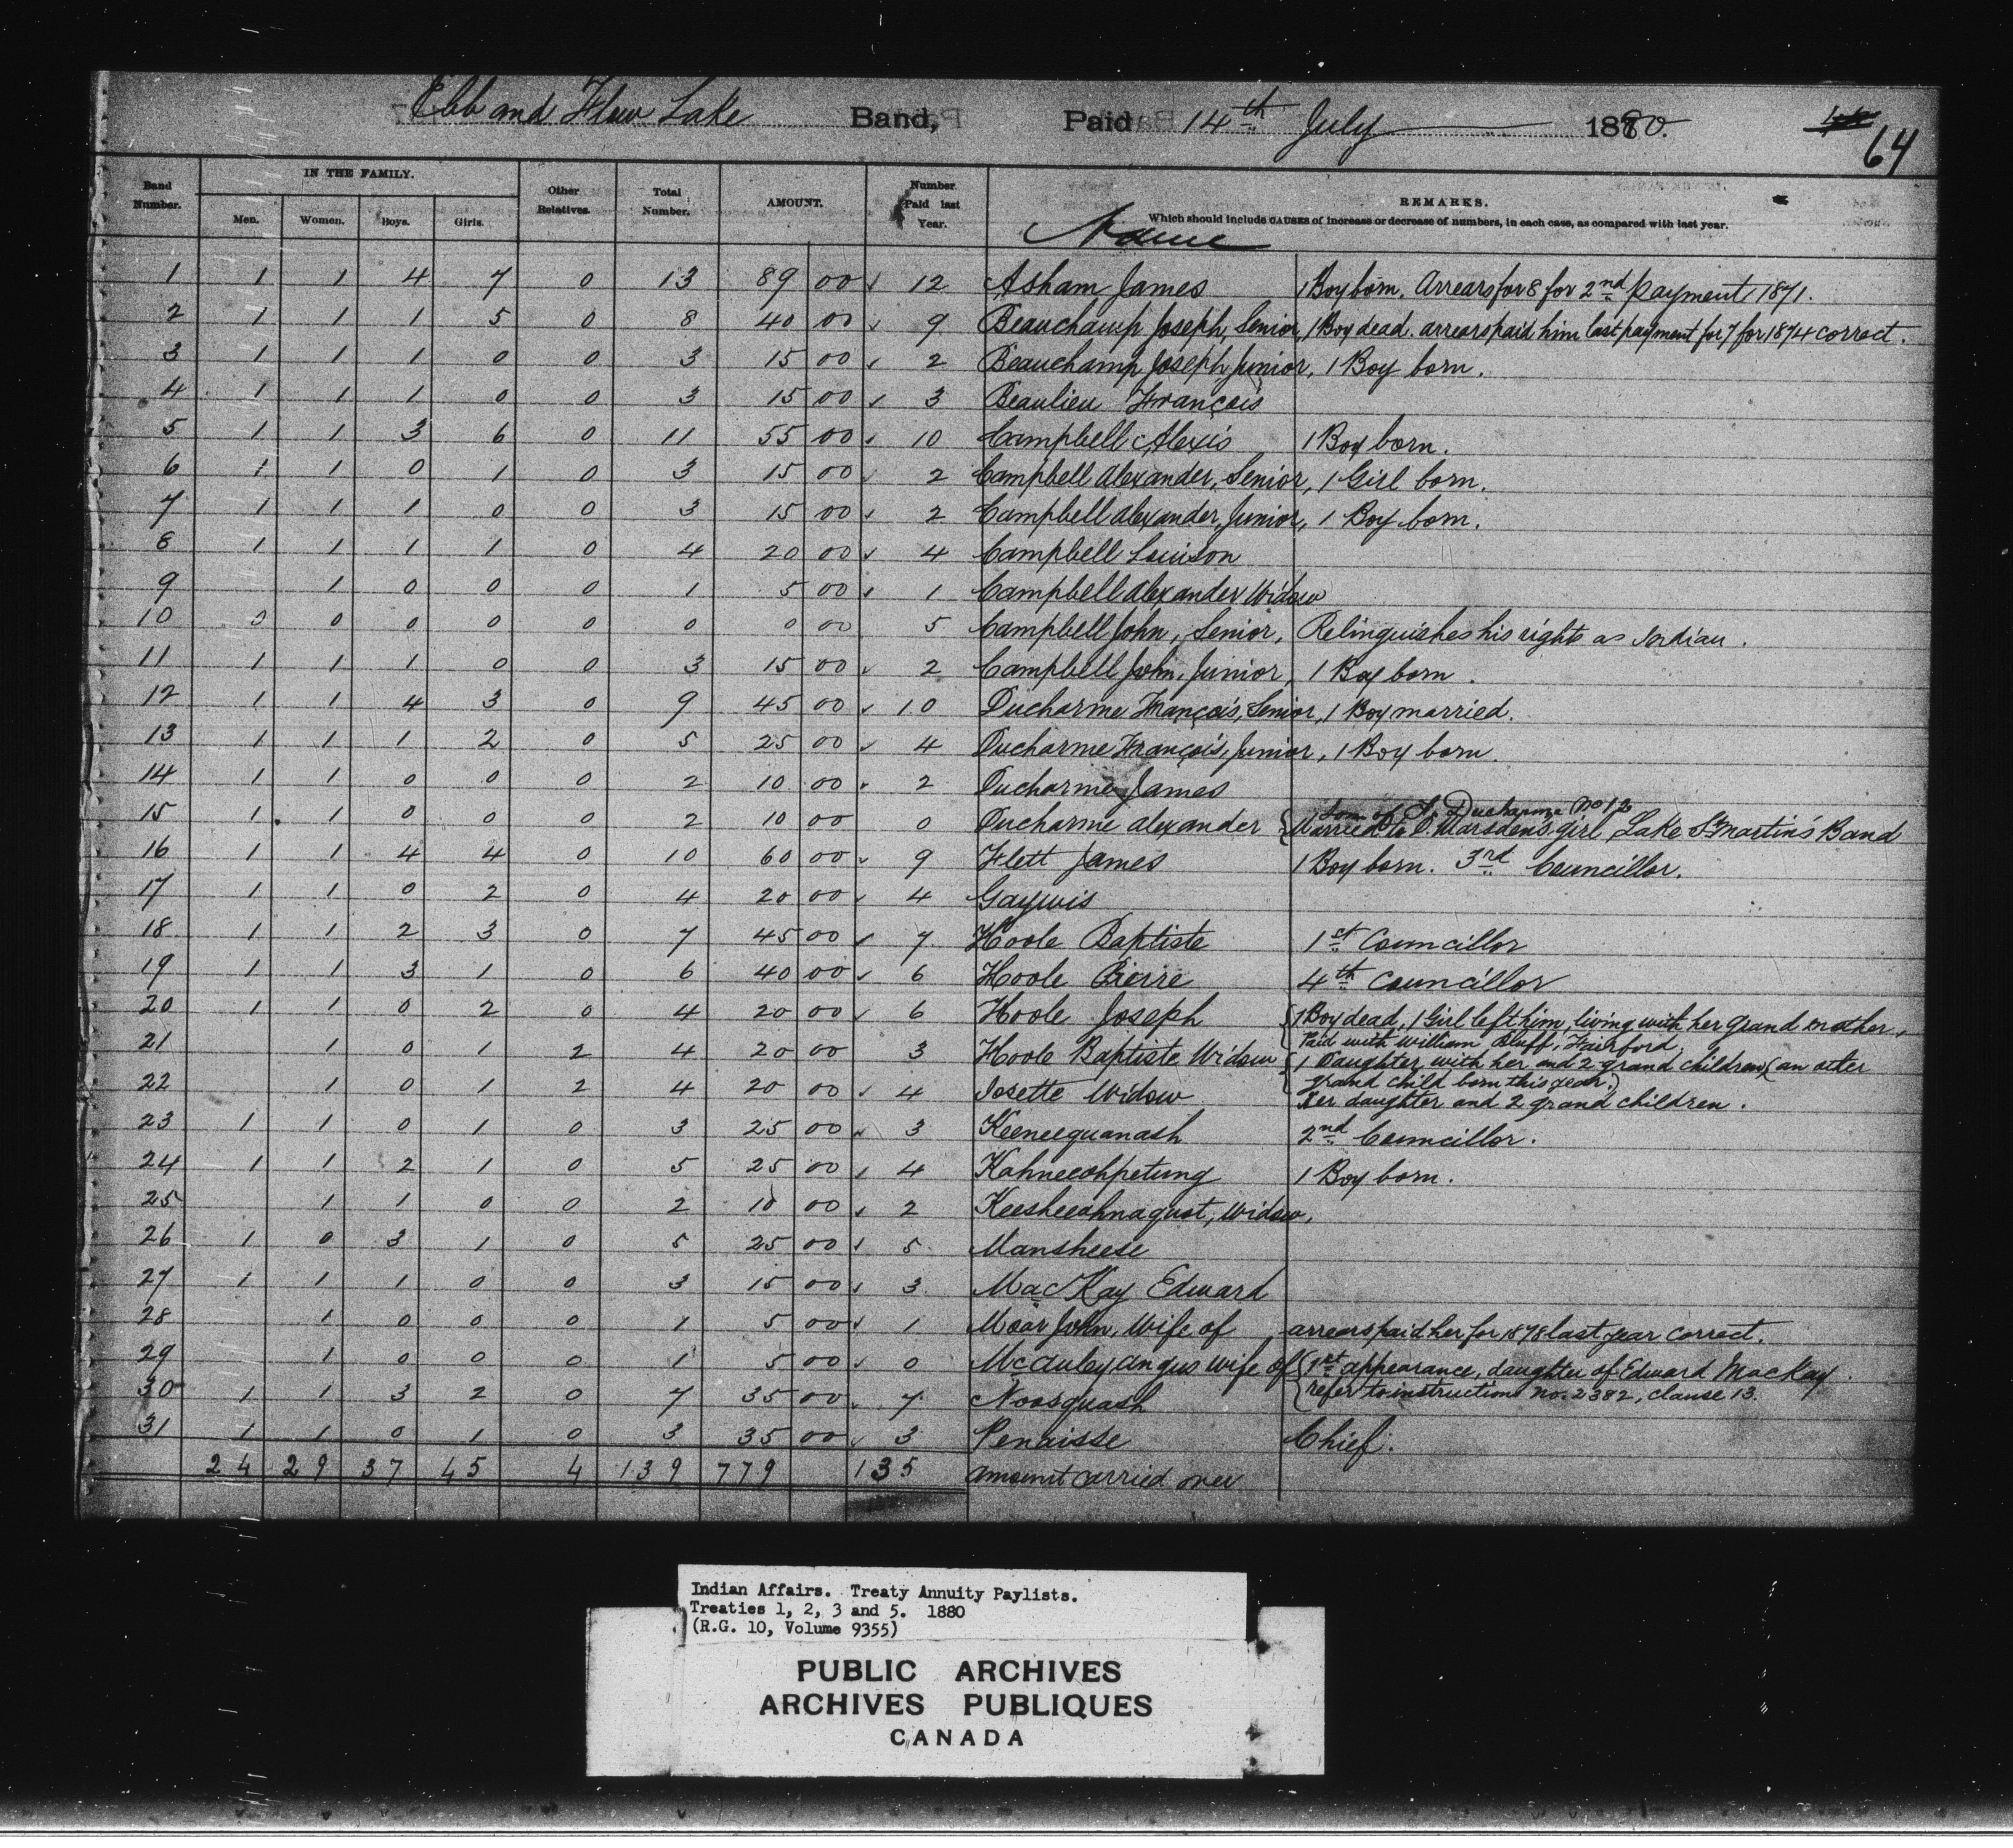 Ebb and Flow Lake Band, Paid 14th July 1880.
64
Band Number. IN THE FAMILY. Men. Women. Boys. Girls. Other Relatives. Total Number. AMOUNT. Number Paid last Year. Name REMARKS.
Which should include CAUSES of increase or decrease of numbers, in each case, as compared with last year.
1 1 1 4 7 0 13 89 00 12 Asham James 1 Boy born. Arrears for 8 for 2nd payment 1871.
2 1 1 1 5 0 8 40 00 9 Beauchamp Joseph, Senior, 1 Boy dead. arrears paid him last payment for 7 for 1874 correct.
3 1 1 1 0 0 3 15 00 2 Beauchamp Joseph Junior, 1 Boy born.
4 1 1 1 0 0 3 15 00 3 Beaulieu François
5 1 1 3 6 0 11 55 00 10 Campbell Alexis 1 Boy born.
6 1 1 0 1 0 3 15 00 2 Campbell Alexander, Senior, 1 Girl born.
7 1 1 1 0 0 3 15 00 2 Campbell Alexander, Junior, 1 Boy born.
8 1 1 1 1 0 4 20 00 4 Campbell Louison
9 1 0 0 0 1 5 00 1 Campbell Alexander Widow
10 0 0 0 0 0 0 0 00 5 Campbell John, Senior, Relinquishes his rights as Indian.
11 1 1 1 0 0 3 15 00 2 Campbell John, Junior, 1 Boy born.
12 1 1 4 3 0 9 45 00 10 Ducharme François, Senior, 1 Boy married.
13 1 1 1 2 0 5 25 00 4 Ducharme François, Junior, 1 Boy born.
14 1 1 0 0 0 2 10 00 2 Ducharme James
Son of F. Ducharme No 12
15 1 1 0 0 0 2 10 00 0 Ducharme Alexander Married to O. Marsden's girl, Lake St Martin's Band
16 1 1 4 4 0 10 60 00 9 Flett James 1 Boy born. 3rd Councillor.
17 1 1 0 2 0 4 20 00 4 Gaywis
18 1 1 2 3 0 7 45 00 7 Hoole Baptiste 1st Councillor
19 1 1 3 1 0 6 40 00 6 Hoole Pierre 4th Councillor
20 1 1 0 2 0 4 20 00 6 Hoole Joseph 1 Boy dead, 1 Girl left him, living with her Grand mother,
Paid with William Bluff, Fairford.
21 1 0 1 2 4 20 00 3 Hoole Baptiste Widow 1 Daughter with her and 2 grand children (an other
grand child born this year.)
22 1 0 1 2 4 20 00 4 Josette Widow Her daughter and 2 grand children.
23 1 1 0 1 0 3 25 00 3 Keeneequanash 2nd Councillor.
24 1 1 2 1 0 5 25 00 4 Kahneeohpetung 1 Boy born.
25 1 1 0 0 2 10 00 2 Keesheeahnaquot, Widow,
26 1 0 3 1 0 5 25 00 5 Mansheese
27 1 1 1 0 0 3 15 00 3 MacKay Edward
28 1 0 0 0 1 5 00 1 Moar John, Wife of arrears paid her for 1878 last year correct.
29 1 0 0 0 1 5 00 0 McAuley Angus wife of 1st appearance, daughter of Edward MacKay.
refer to instructions No. 2382, clause 13.
30 1 1 3 2 0 7 35 00 7 Noosquash
31 1 1 0 1 0 3 35 00 3 Penaisse Chief.
24 29 37 45 4 139 779 135 amount carried over
Indian Affairs. Treaty Annuity Paylists.
Treaties 1, 2, 3 and 5. 1880
(R.G. 10, Volume 9355)
PUBLIC ARCHIVES
ARCHIVES PUBLIQUES
CANADA